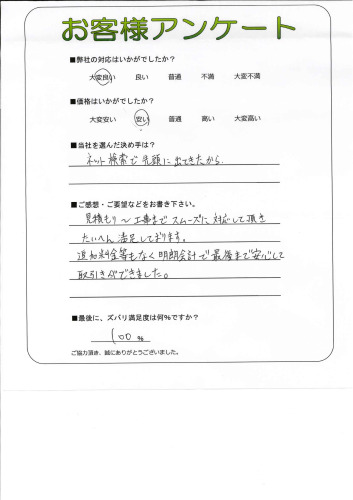 お客様アンケート
■弊社の対応はいかがでしたか？
大変良い 良い 普通 不満 大変不満
■価格はいかがでしたか？
大変安い 安い 普通 高い 大変高い
■当社を選んだ決め手は？
ネット検索で先頭に出てきたから。
■ご感想・ご要望などをお書き下さい。
見積もり～工事までスムーズに対応して頂き
たいへん満足しております。
追加料金等もなく明朗会計で最後まで安心して
取引きができました。
■最後に、ズバリ満足度は何%ですか？
100 %
ご協力頂き、誠にありがとうございました。